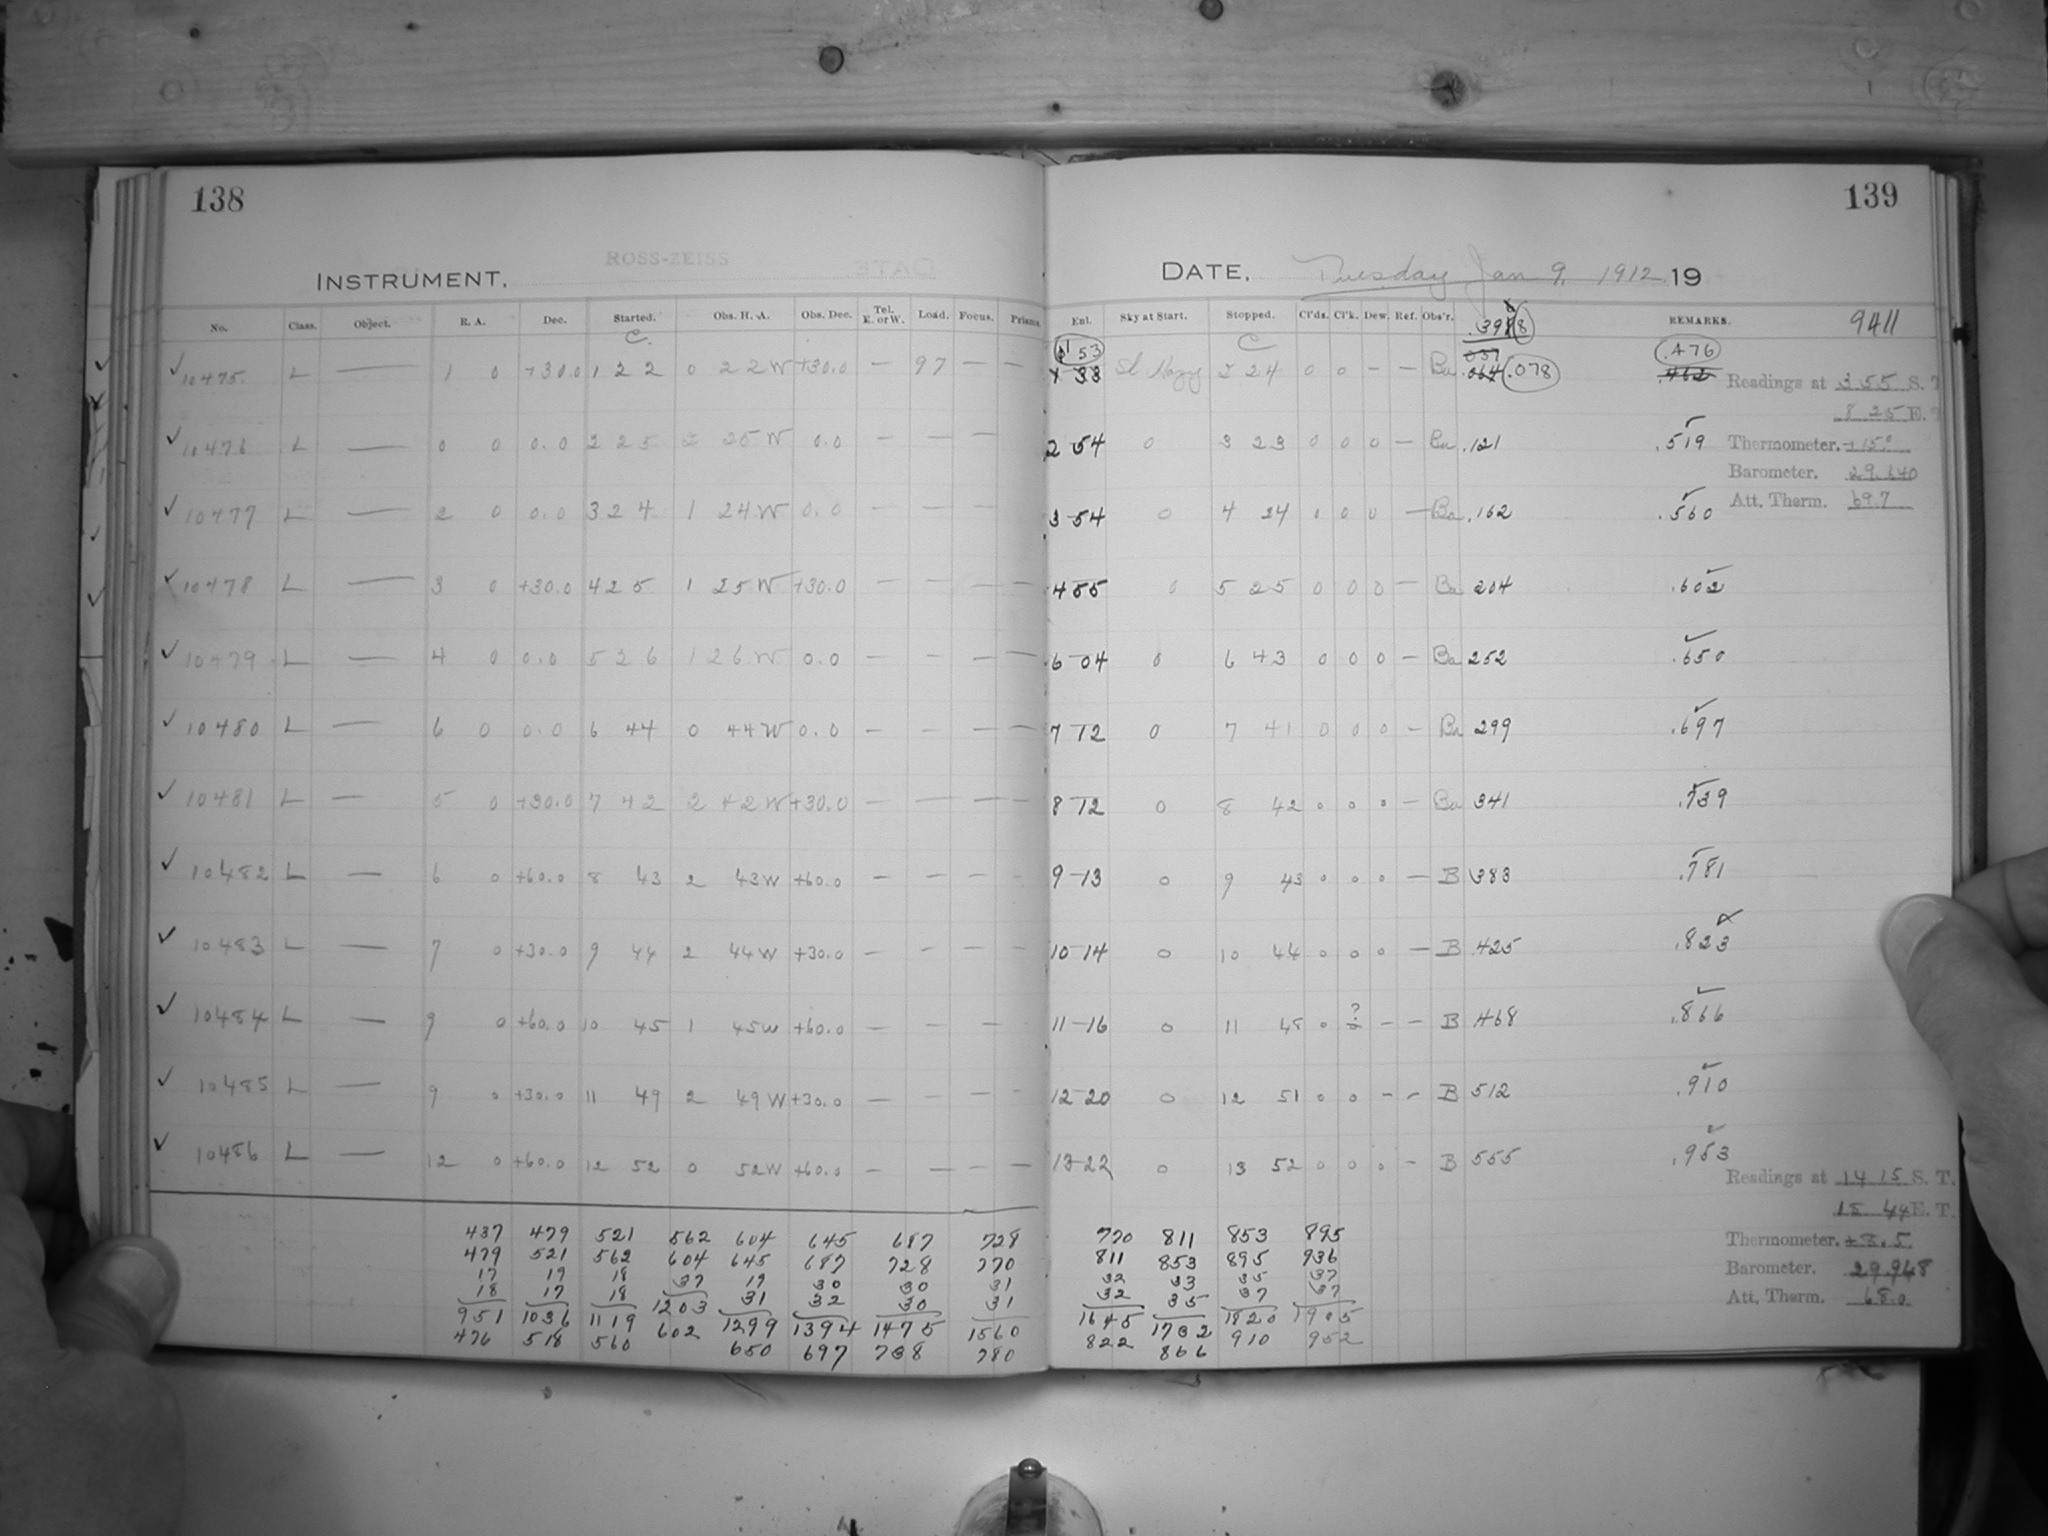 138
ROSS-ZEISS
INSTRUMENT,
No. Class. Object. R. A. Dec. Started. Obs. H. A. Obs. Dec. Tel. E. or W. Load. Focus. Prisms.
C
✓ 10475 L — 1 0 +30.0 1 22 0 22 W +30.0 — 97 — —
✓ 10476 L — 0 0 0.0 2 25 2 25 W 0.0 — — — —
✓ 10477 L — 2 0 0.0 3 24 1 24 W 0.0 — — — —
✓ 10478 L — 3 0 +30.0 4 25 1 25 W +30.0 — — — —
✓ 10479 L — 4 0 0.0 5 26 1 26 W 0.0 — — — —
✓ 10480 L — 6 0 0.0 6 44 0 44 W 0.0 — — — —
✓ 10481 L — 5 0 +30.0 7 42 2 42 W +30.0 — — — —
✓ 10482 L — 6 0 +60.0 8 43 2 43 W +60.0 — — — —
✓ 10483 L — 7 0 +30.0 9 44 2 44 W +30.0 — — — —
✓ 10484 L — 9 0 +60.0 10 45 1 45 W +60.0 — — — —
✓ 10485 L — 9 0 +30.0 11 49 2 49 W +30.0 — — — —
✓ 10486 L — 12 0 +60.0 12 52 0 52 W +60.0 — — — —
437 479 521 562 604 645 687 728
479 521 562 604 645 687 728 770
17 19 18 37 19 30 30 31
18 17 18 31 32 30 31
951 1036 1119 1203 1299 1394 1475 1560
476 518 560 602 650 697 738 780
139
DATE, Tuesday Jan 9, 1912 19
Enl. Sky at Start. Stopped. Cl'ds. Cl'k. Dew. Ref. Obs'r. REMARKS. 9411
C
1 53 .476
33 Sl Hazy 2 24 0 0 — — Ba .064 .078 .462
Readings at 3 55 S. T.
8 25 E. T.
2 54 0 3 23 0 0 0 — Ba .121 .519
Thermometer. +15°
Barometer. 29.640
3 54 0 4 24 0 0 0 — Ba .162 .560
Att. Therm. 69.7
4 55 0 5 25 0 0 0 — Ba 204 .602
6 04 0 6 43 0 0 0 — Ba 252 .650
7 12 0 7 41 0 0 0 — Ba 299 .697
8 12 0 8 42 0 0 0 — Ba 341 .739
9 13 0 9 43 0 0 0 — B 383 .781
10 14 0 10 44 0 0 0 — B 425 .823
11 16 0 11 48 0 ? — — B 468 .866
12 20 0 12 51 0 0 — — B 512 .910
13 22 0 13 52 0 0 0 — B 555 .953
Readings at 14 15 S. T.
15 44 E. T.
Thermometer. +3.5
Barometer. 29.948
Att. Therm. 68.0
770 811 853 895
811 853 895 936
32 33 35 37
32 35 37 37
1645 1732 1820 1905
822 866 910 952